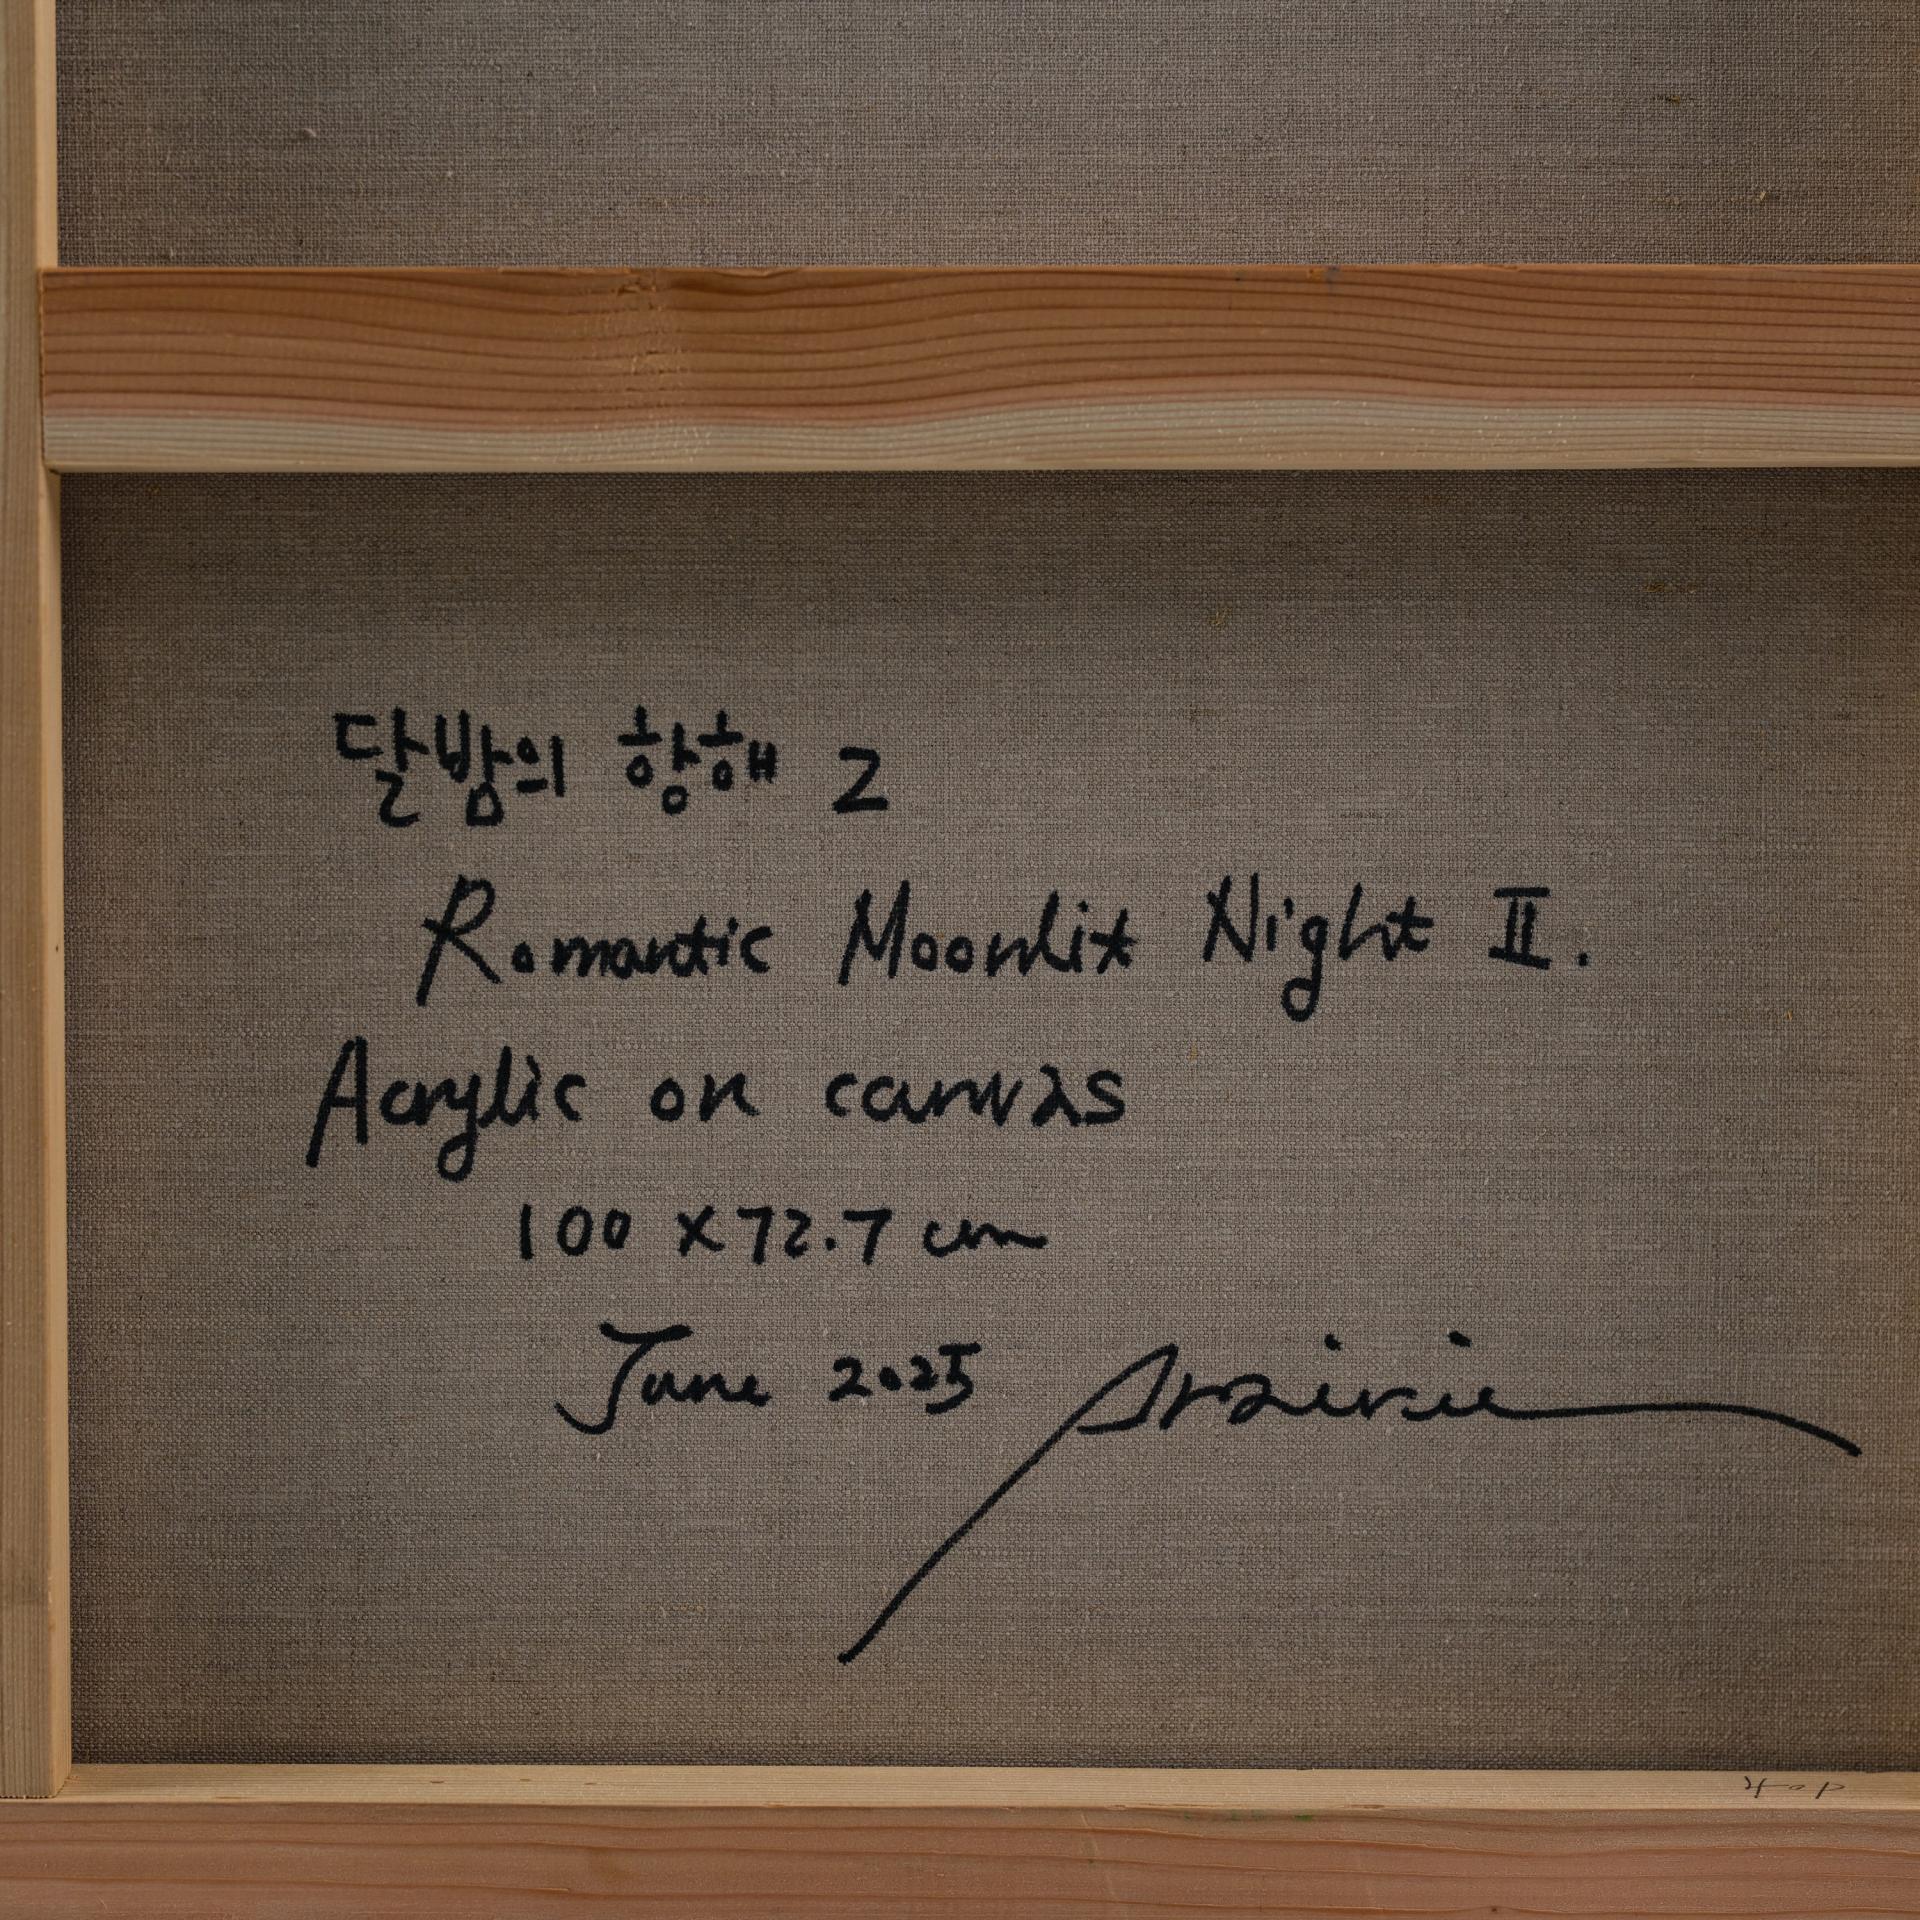 달밤의 항해 2
Romantic Moonlit Night II.
Acrylic on canvas
100 x 72.7 cm
June 2025